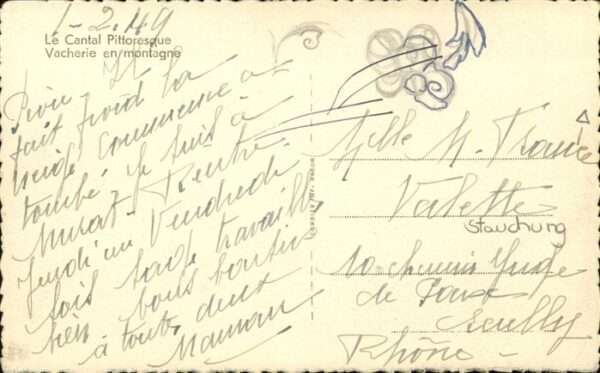 1-2.49
Le Cantal Pittoresque
Vacherie en montagne
Il
fait froid la
neige commence à
tomber je suis à
Murat - Rentre
Jeudi ou Vendredi
sois sage travaille
bien bons
à toutes deux
Maman
Mlle M. France
Valette
Stauchung
10 chemin Juge
de Paix
Ecully
Rhône -